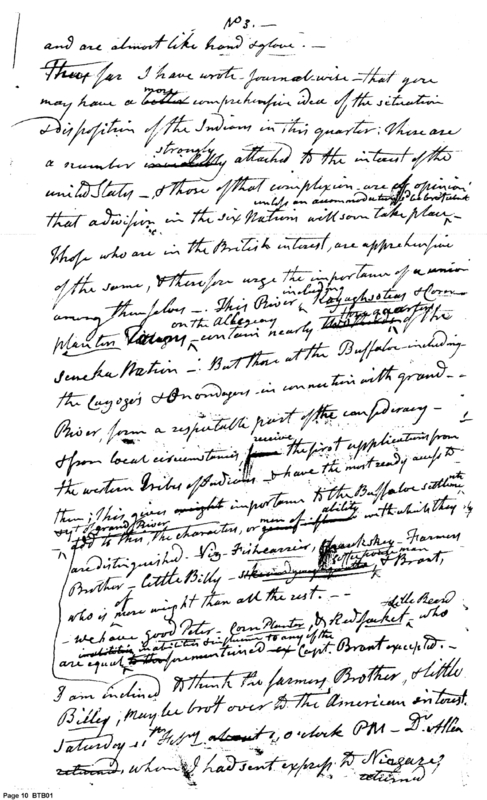 No 3. —
and are almost like hand & glove. —
Thus far I have wrote Journal-wise — that you
may have a more comprehensive idea of the situation
& disposition of the Indians in this quarter: There are
a number strongly attached to the interest of the
united States — & those of that complexion are of opinion
unless an accommodation
that a division in the six Nations will soon take place —
Those who are in the British interest, are apprehensive
of the same, & therefore urge the importance of a union
among themselves —. This River including
planters Towns on the Allegany contain nearly three quarters of the
Seneka Nation — But those at the Buffaloe including
the Cayogas & Onondagers in connection with grand
River form a respectable part of the confederacy —
& from local circumstances receive the first applications from
the western Tribes of Indians & have the most ready access to
them; this gives importance to the Buffaloe settlement
& yt of grand River
add to this, the characters, or men of ability with which they
are distinguished Viz Fishcarrier, Farmers
Brother — Little Billy — & Brant,
who is of more weight than all the rest. —
— we have good Peter — Corn Planter, & Red Jacket Little Beard who
are equal premention'd Capt. Brant excepted. —
I am inclined to think the farmers Brother, & little
Billy, may be brot over to the American interest.
Saturday o'clock PM — Dr. Allen
whom I had sent express to Niagara,
returned
Page 10 BTB01